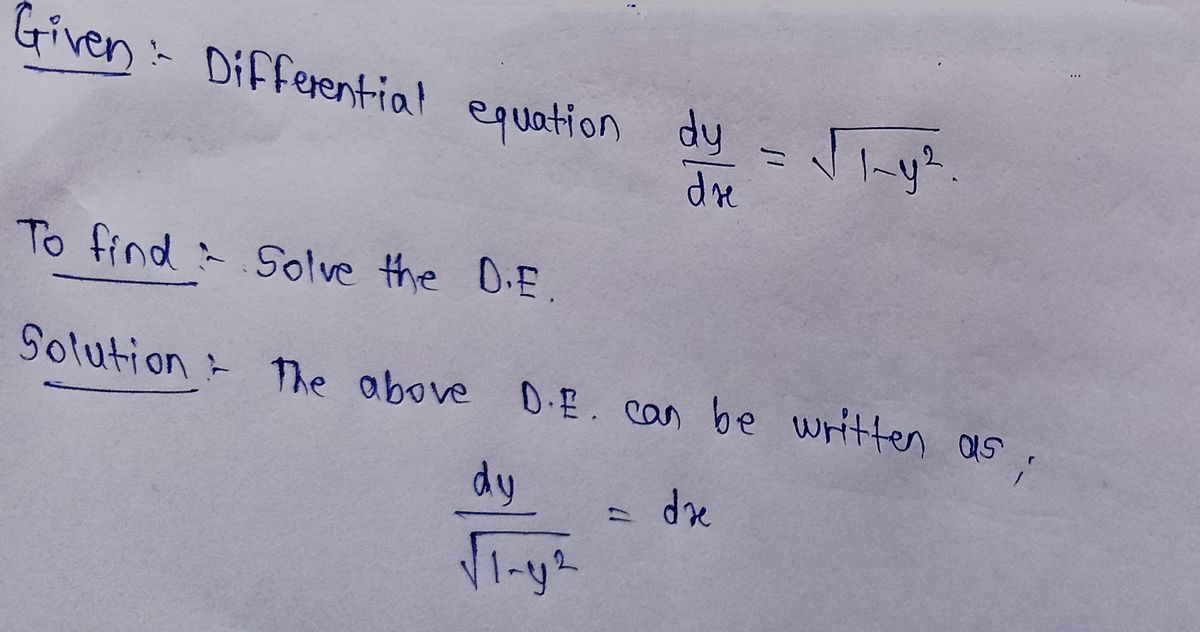 Given :- Differential equation dy/dx = √1-y².
To find :- Solve the D.E.
Solution :- The above D.E. can be written as ;
dy/√1-y² = dx